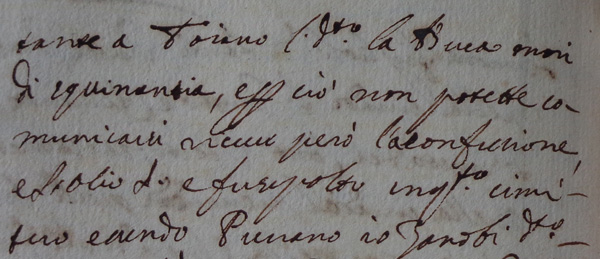 tante a Toiano l. dto. la Buca morì
di squinantia, e p ciò non potette co-
municarsi riceuè però la confessione,
e l'olio S. e fu sepolto in qsto. cimi-
tero essendo Pieuano io Zanobi dto. -